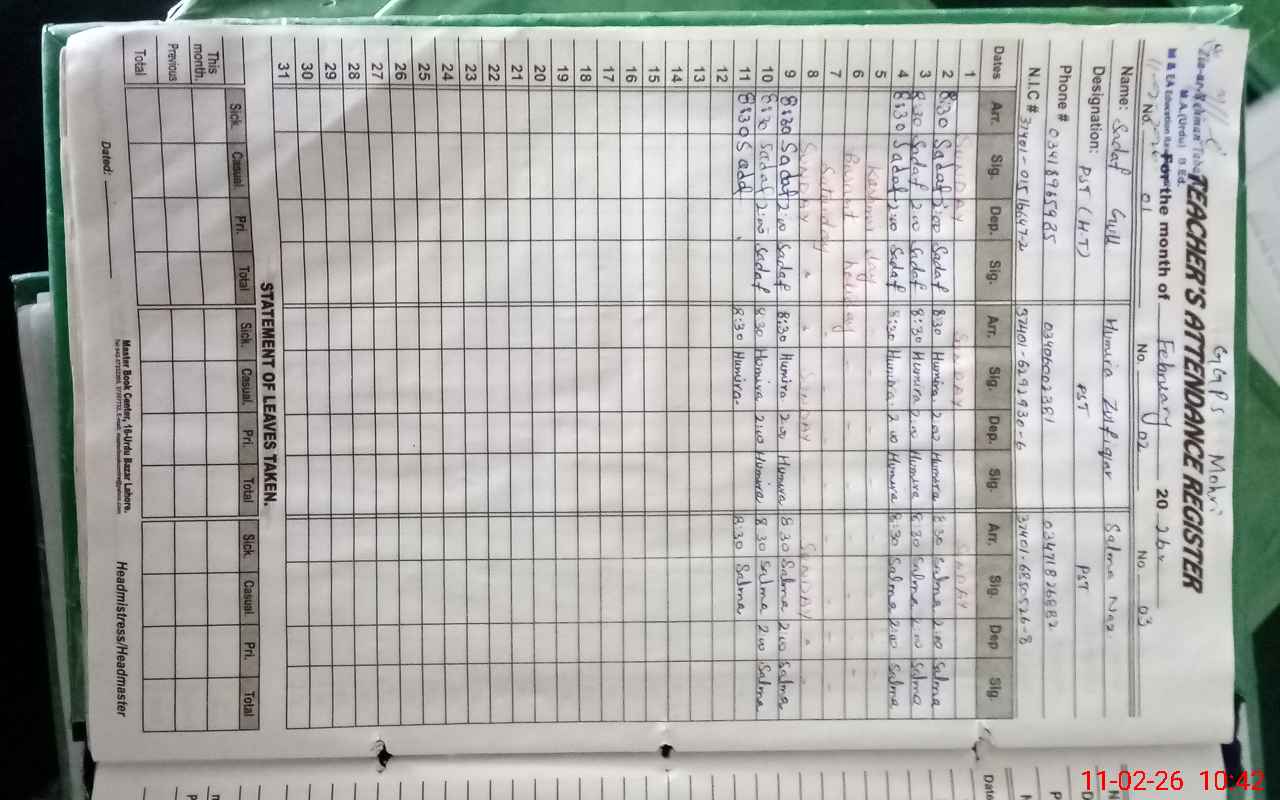 GGPS Mohri
TEACHER'S ATTENDANCE REGISTER
M.A.(Urdu) B.Ed.
For the month of February 20 26
No. 01 No. 02 No. 03
Name: Sadaf Gull Humira Zulfiqar Salma Naz
Designation: PST (H.T) PST PST
Phone # 03418965985 03406002381 03471826882
N.I.C #
Dates Arr. Sig. Dep. Sig. Arr. Sig. Dep. Sig. Arr. Sig. Dep Sig.
1 SUNDAY SUNDAY SUNDAY
2 8:30 Sadaf 2:00 Sadaf 8:30 Humira 2:00 Humira 8:30 Salma 2:00 Salma
3 8:30 Sadaf 2:00 Sadaf 8:30 Humira 2:00 Humira 8:30 Salma 2:00 Salma
4 8:30 Sadaf 2:00 Sadaf 8:30 Humira 2:00 Humira 8:30 Salma 2:00 Salma
5 Kashmir day
6 Basant holiday
7 Saturday
8 SUNDAY SUNDAY SUNDAY
9 8:30 Sadaf 2:00 Sadaf 8:30 Humira 2:00 Humira 8:30 Salma 2:00 Salma
10 8:30 Sadaf 2:00 Sadaf 8:30 Humira 2:00 Humira 8:30 Salma 2:00 Salma
11 8:30 Sadaf 8:30 Humira 8:30 Salma
12
13
14
15
16
17
18
19
20
21
22
23
24
25
26
27
28
29
30
31
STATEMENT OF LEAVES TAKEN.
Sick. Casual. Pri. Total Sick. Casual. Pri. Total Sick. Casual Pri. Total
This month.
Previous
Total
Dated:
Master Book Center, 16-Urdu Bazar Lahore.
Headmistress/Headmaster
11-02-26 10:42